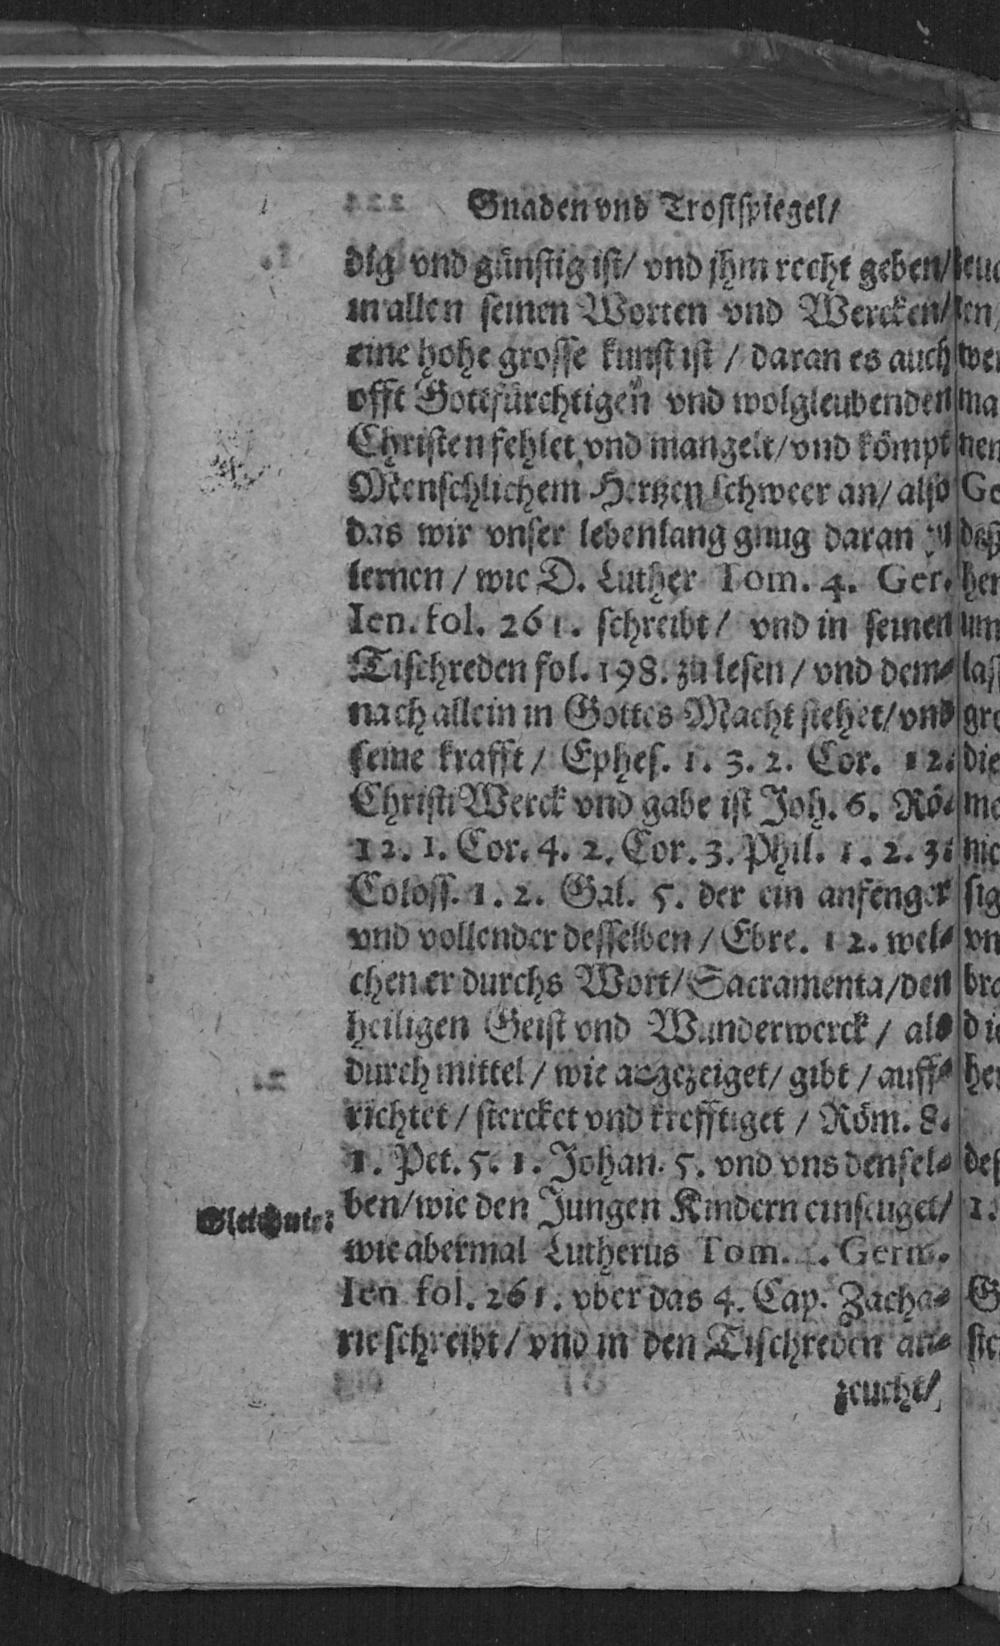 Gnaden vnd Trostspiegel/
dig vnd günstig ist/ vnd jhm recht geben/
in allen seinen Worten vnd Wercken/
eine hohe grosse kunst ist / daran es auch
offt Gottfürchtigen vnd wolgleubenden
Christen fehlet vnd mangelt/ vnd kömpt
Menschlichem Hertzen schweer an/ also
das wir vnser lebenlang gnug daran zu
lernen / wie D. Luther Tom. 4. Ger.
Ien. fol. 261. schreibt/ vnd in seinen
Tischreden fol. 198. zu lesen / vnd dem-
nach allein in Gottes Macht stehet/ vnd
seine krafft / Ephes. 1. 3. 2. Cor. 12.
Christi Werck vnd gabe ist Joh. 6. Rö-
12. 1. Cor. 4. 2. Cor. 3. Phil. 1. 2. 3.
Coloss. 1. 2. Gal. 5. der ein anfenger
vnd vollender desselben / Ebre. 12. wel-
chen er durchs Wort/ Sacramenta/ den
heiligen Geist vnd Wunderwerck / als
durch mittel / wie angezeiget/ gibt / auff-
richtet / stercket vnd krefftiget / Röm. 8.
1. Pet. 5. 1. Johan. 5. vnd vns densel-
Gleichnis:
ben/ wie den Jungen Kindern einseuget/
wie abermal Lutherus Tom. Germ.
Ien fol. 261. vber das 4. Cap. Zacha-
rie schreibt / vnd in den Tischreden an-
zeucht/